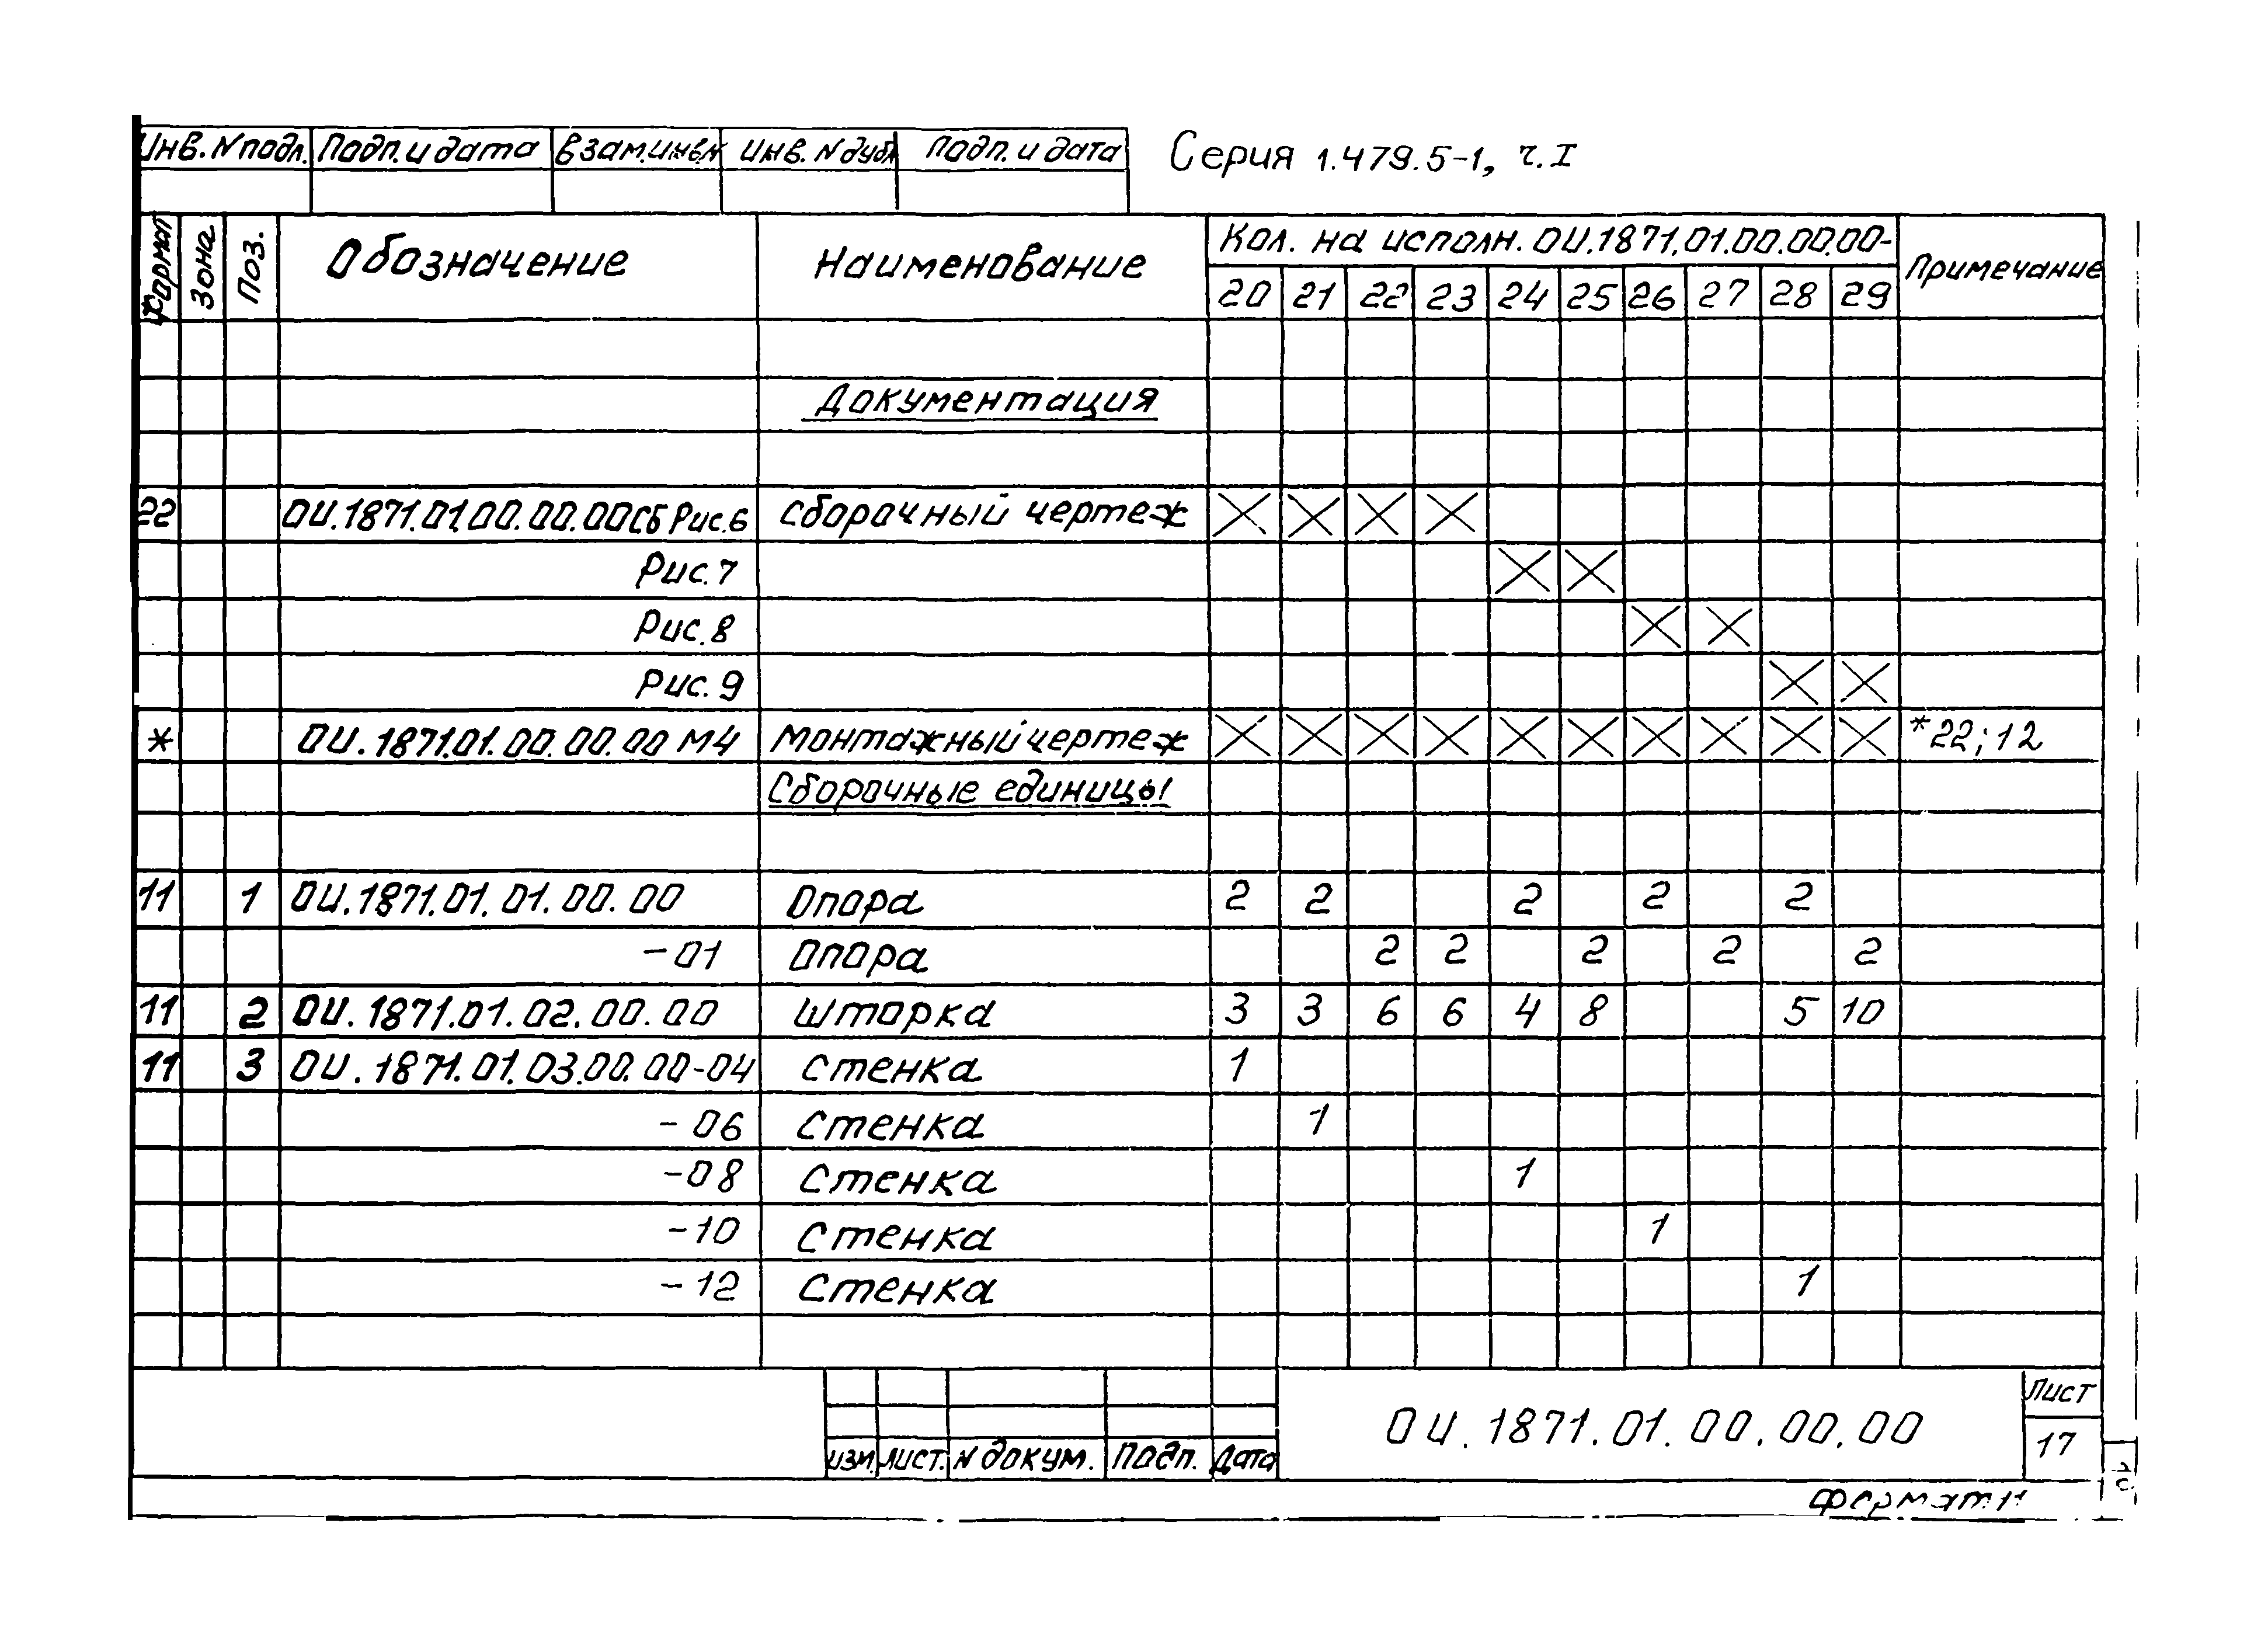 Инв. N подл. Подп. и дата Взам.инв.N Инв. N дубл Подп. и дата Серия 1.479.5-1, ч.I
Формат Зона Поз. Обозначение Наименование Кол. на исполн. ОИ.1871.01.00.00.00- Примечание
20 21 22 23 24 25 26 27 28 29
Документация
22 ОИ.1871.01.00.00.00СБ Рис.6 Сборочный чертеж X X X X
Рис.7 X X
Рис.8 X X
Рис.9 X X
* ОИ.1871.01.00.00.00 МЧ Монтажный чертеж X X X X X X X X X X *22;12
Сборочные единицы
11 1 ОИ.1871.01.01.00.00 Опора 2 2 2 2 2
-01 Опора 2 2 2 2 2
11 2 ОИ.1871.01.02.00.00 Шторка 3 3 6 6 4 8 5 10
11 3 ОИ.1871.01.03.00.00-04 Стенка 1
-06 Стенка 1
-08 Стенка 1
-10 Стенка 1
-12 Стенка 1
Изм. Лист. N докум. Подп. Дата ОИ.1871.01.00.00.00 Лист 17
Формат 11